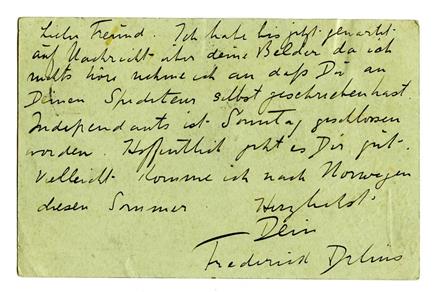 Lieber Freund. Ich habe bis jetzt gewartet
auf Nachricht über deine Bilder da ich
nichts höre nehme ich an daß Du an
Deinen Spediteur selbst geschrieben hast.
Independants ist Sonntag geschlossen
worden. Hoffentlich geht es Dir gut.
Vielleicht komme ich nach Norwegen
diesen Sommer Herzlichst
Dein
Frederick Delius